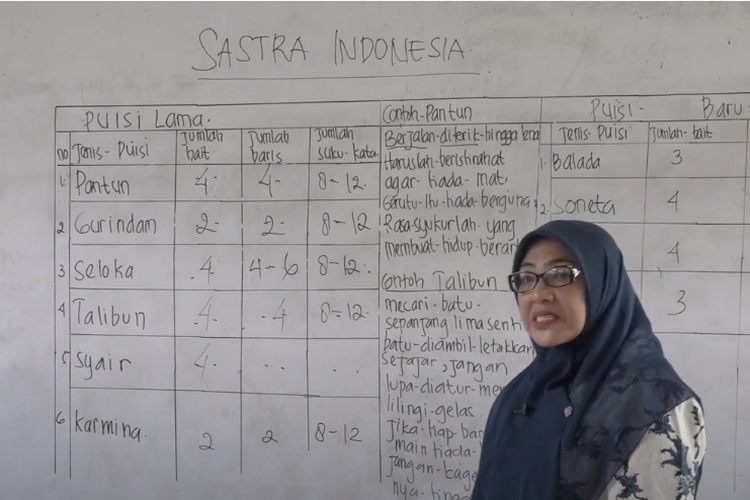 SASTRA INDONESIA.
PUISI Lama.
no Jenis-Puisi Jumlah bait. Jumlah baris Jumlah suku-kata
1. Pantun 4- 4- 8-12.
2 Gurindan 2- 2- 8-12
3 Seloka .4 4-6 8-12.
4 Talibun .4. .4 8-12.
5 Syair 4- .. ...
6 Karmina. 2 2 8-12
Contoh-Pantun
Berjalan-diterit-hingga
Haruslah-beristirahat
agar-tiada-mat,
Gerutu-itu-hada-berguna,
Rasa-syukurlah-yang
membuat-hidup-berar
Contoh Talibun
mecari-batu-
sepanjang lima senti
batu-diambil-letakkan
sejajar, jangan
lupa-diatur-me
lilingi-gelas.
Jika-tiap-bar
main tiada-
jangan-
nya-hingg
PUISI- Baru
Jenis-PUISI Jumlah-bait
1. Balada 3
2. Soneta 4
4
3